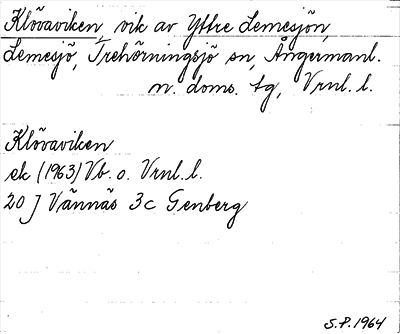 Klövaviken, vik av Yttre Lemesjön,
Lemesjö, Trehörningsjö sn, Ångermanl.
n. doms. tg, Vrnl. l.
Klövaviken
ek (1963) Vb. o. Vrnl. l.
20 J Vännäs 3c Genberg
S.P. 1964